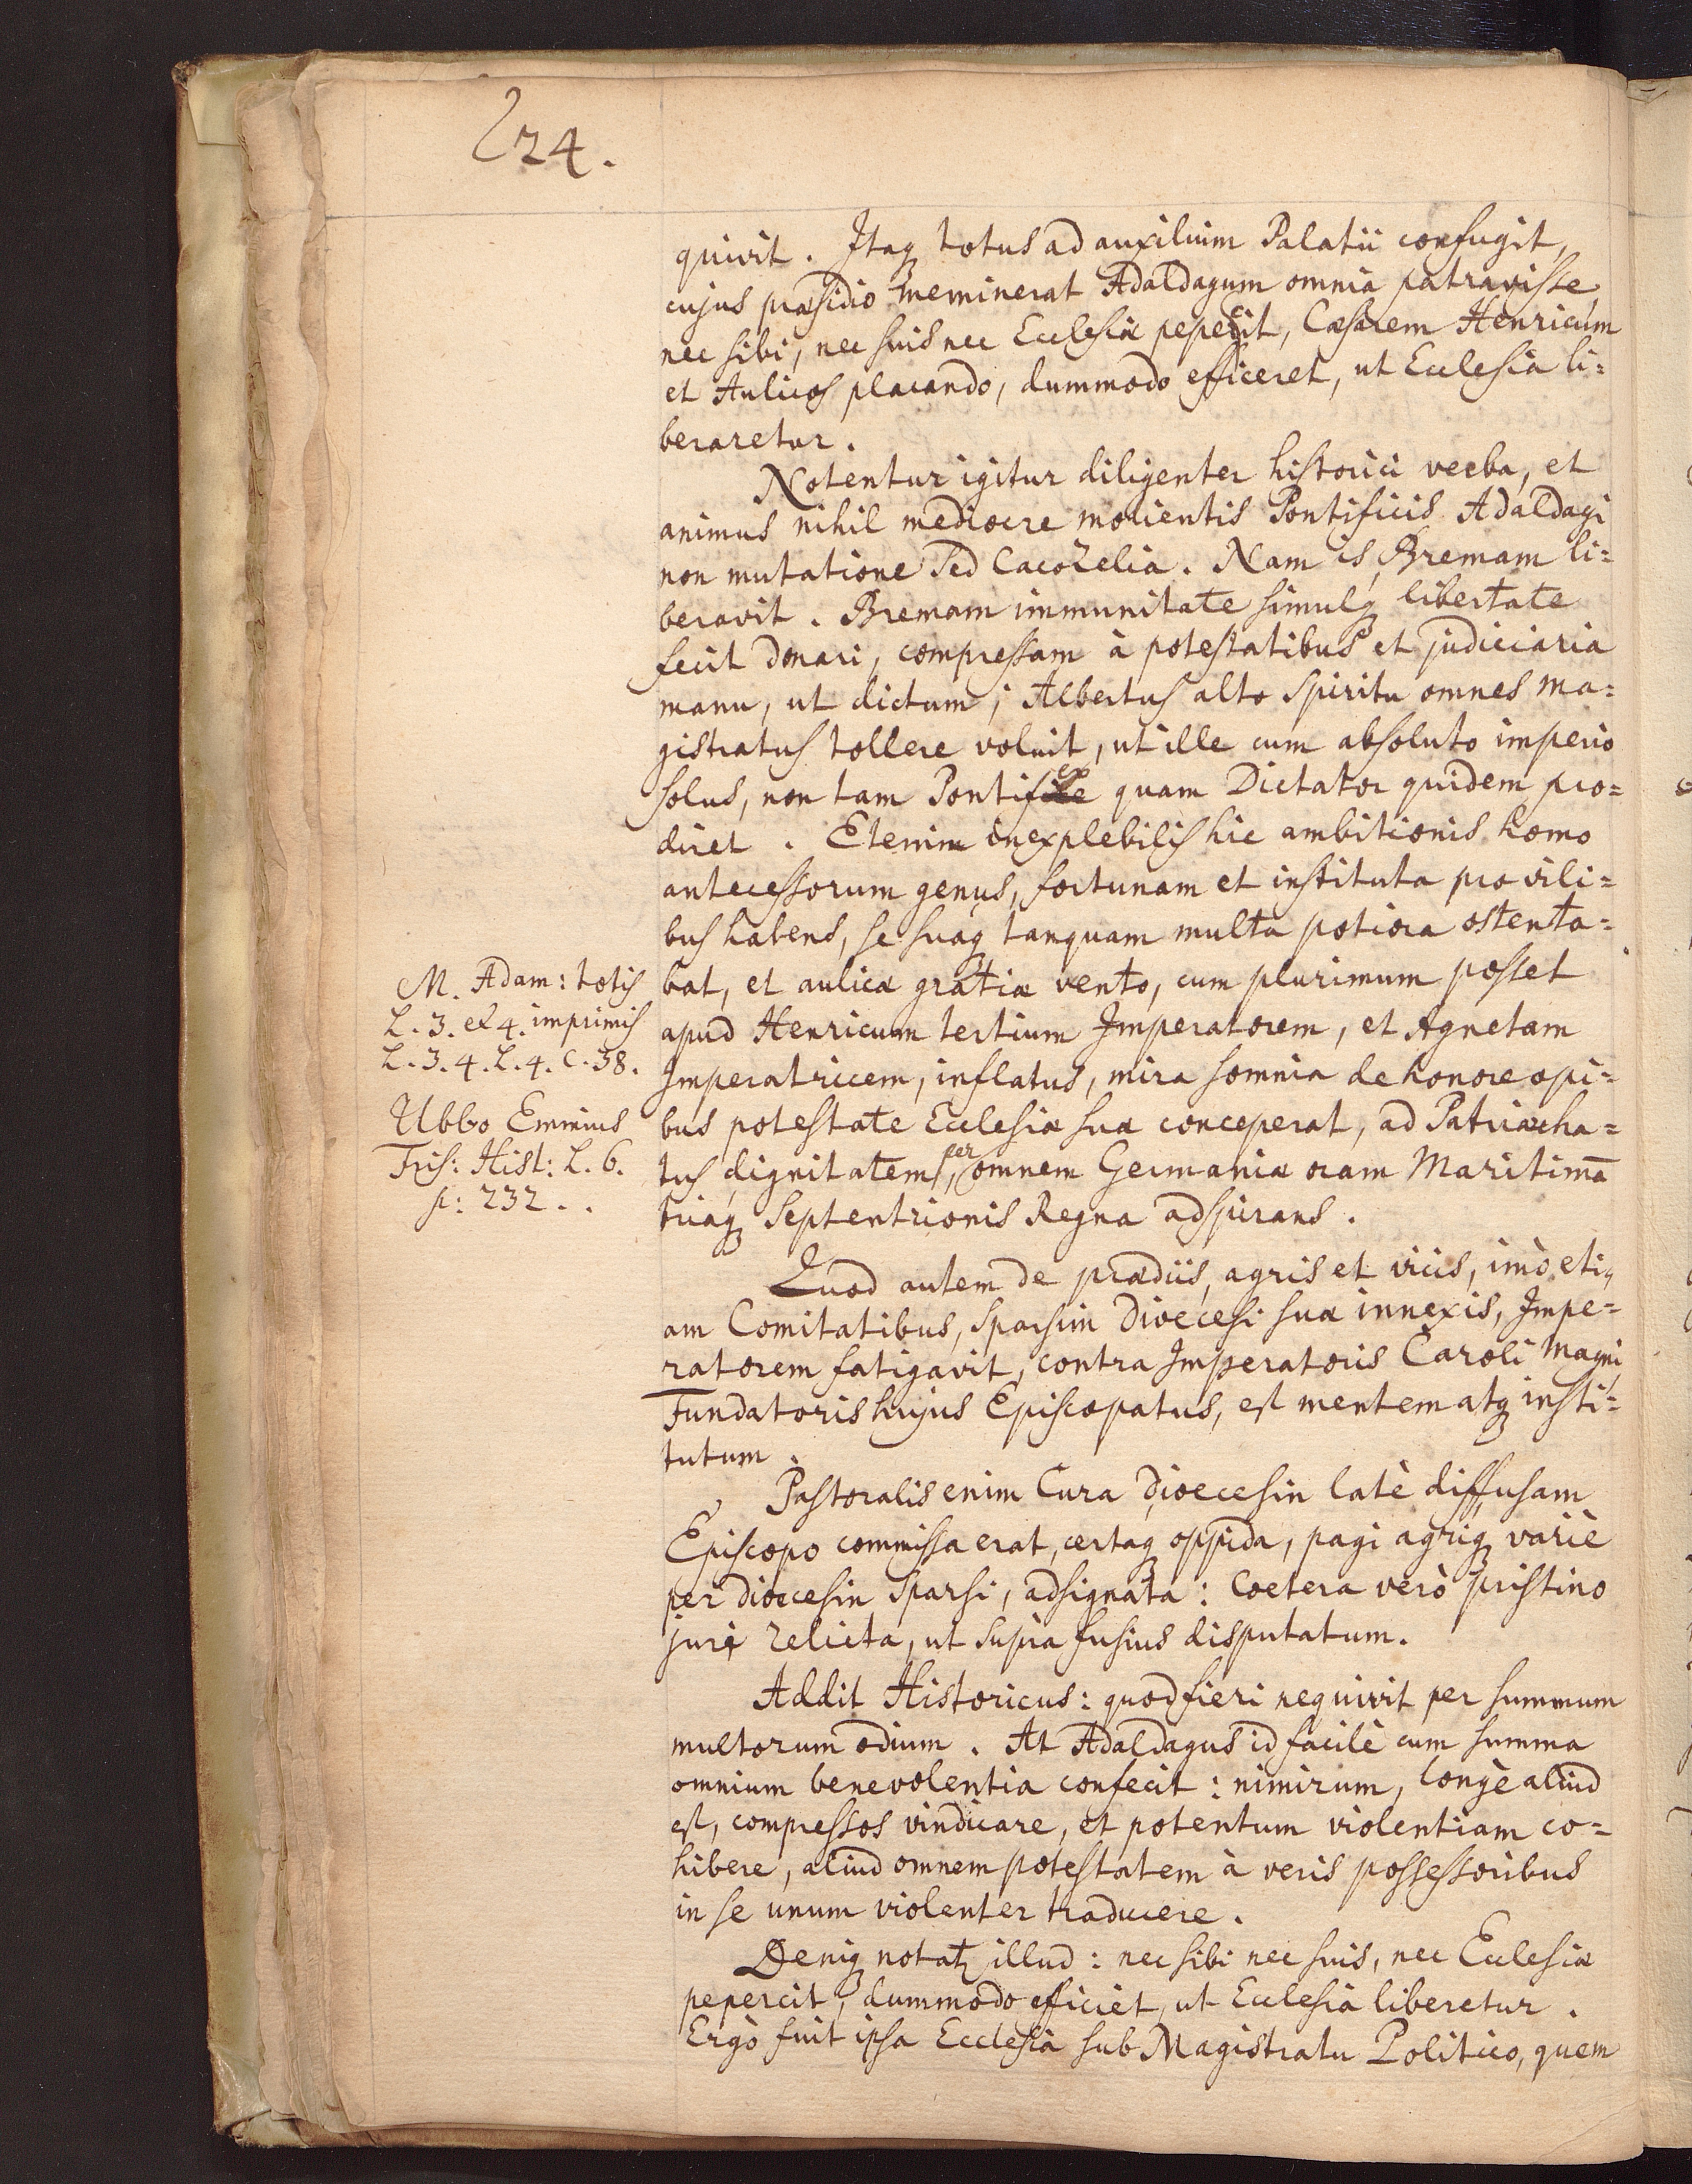 224.
quivit. Itaq totus ad auxilium Palatii confugit,
cujus præsidio meminerat Adaldagum omnia patravisse,
nec sibi, nec suis nec Ecclesiæ pepercit, Cæsarem Henricum
et Aulicos placando, dummodo efficeret, ut Ecclesia li=
beraretur.
Notentur igitur diligenter historici verba, et
animus nihil mediocre molientis Pontificis Adaldagi
non mutatione sed Cacozelia. Nam is, Bremam li=
beravit. Bremam immunitate simulq libertate
fecit donari, compressam à potestatibus et judiciaria
manu, ut dictum; Albertus alto spiritu omnes ma=
gistratus tollere voluit, ut ille cum absoluto imperio
solus, non tam Pontifex quam Dictator quidem pro=
diret. Etenim inexplebilis hic ambitionis homo
antecessorum genus, fortunam et instituta pro vili=
bus habens, se suaq tanquam multa potiora ostenta=
bat, et aulicæ gratiæ vento, cum plurimum posset
apud Henricum tertium Imperatorem, et Agnetam
Imperatricem, inflatus, mira somnia de honore opi=
bus potestate Ecclesiæ suæ conceperat, ad Patriarcha=
tus dignitatem, per omnem Germaniæ oram Maritimā
triaq Septentrionis Regna adspirans.
M. Adam: totis
L. 3. et 4. imprimis
L. 3. 4. L. 4. C. 38.
Ubbo Emmius
Fris: Hist: L. 6.
p: 232..
Quod autem de prædiis, agris et vicis, imò eti,
am Comitatibus, sparsim Dioecesi suæ innexis, Impe=
ratorem fatigavit, contra Imperatoris Caroli Magni
Fundatoris hujus Episcopatus, est mentem atq insti=
tutum.
Pastoralis enim Cura dioecesin latè diffusam
Episcopo commissa erat, certaq oppida, pagi agriq variè
per dioecesin sparsi, adsignata: Coetera verò pristino
juri relicta, ut supra fusius disputatum.
Addit Historicus: quod fieri nequivit per summum
multorum odium. At Adaldagus id facilè cum summa
omnium benevolentia confecit: nimirum, longè aliud
est, compressos vindicare, et potentum violentiam co=
hibere, aliud omnem potestatem à veris possessoribus
in se unum violenter traducere.
Deniq notatʒ illud: nec sibi nec suis, nec Ecclesiæ
pepercit, dummodo efficiet, ut Ecclesia liberetur.
Ergò fuit ipsa Ecclesia sub Magistratu Politico, quem